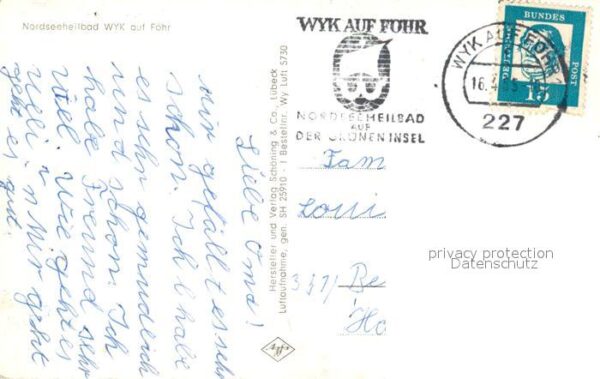 Nordseeheilbad WYK auf Föhr
Liebe Oma!
Mir gefällt es sehr
schon. Ich habe
es sehr gemütlich
nun schon. Ich
habe Freund sehr
viel. Wie geht es
Mir geht
geht es gut.
Hersteller und Verlag Schöning & Co., Lübeck
Luftaufnahme, gen. SH 25910 - 1 Bestellnr. Wy Luft 5730
Agfa
WYK AUF FÖHR
NORDSEEHEILBAD
AUF
DER GRÜNEN INSEL
WYK AUF FÖHR
16.
227
DEUTSCHE
BUNDES
POST
15
Fam
Loui
Be
Ho
privacy protection
Datenschutz